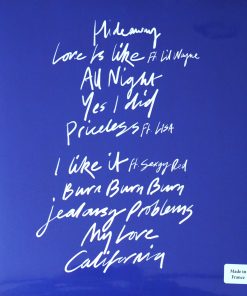 Hideaway
Love Is Like ft Lil Wayne
All Night
Yes I Did
Priceless ft. LISA
I like it ft Sexyy Red
Burn Burn Burn
jealousy Problems
My Love
California
Made in
France